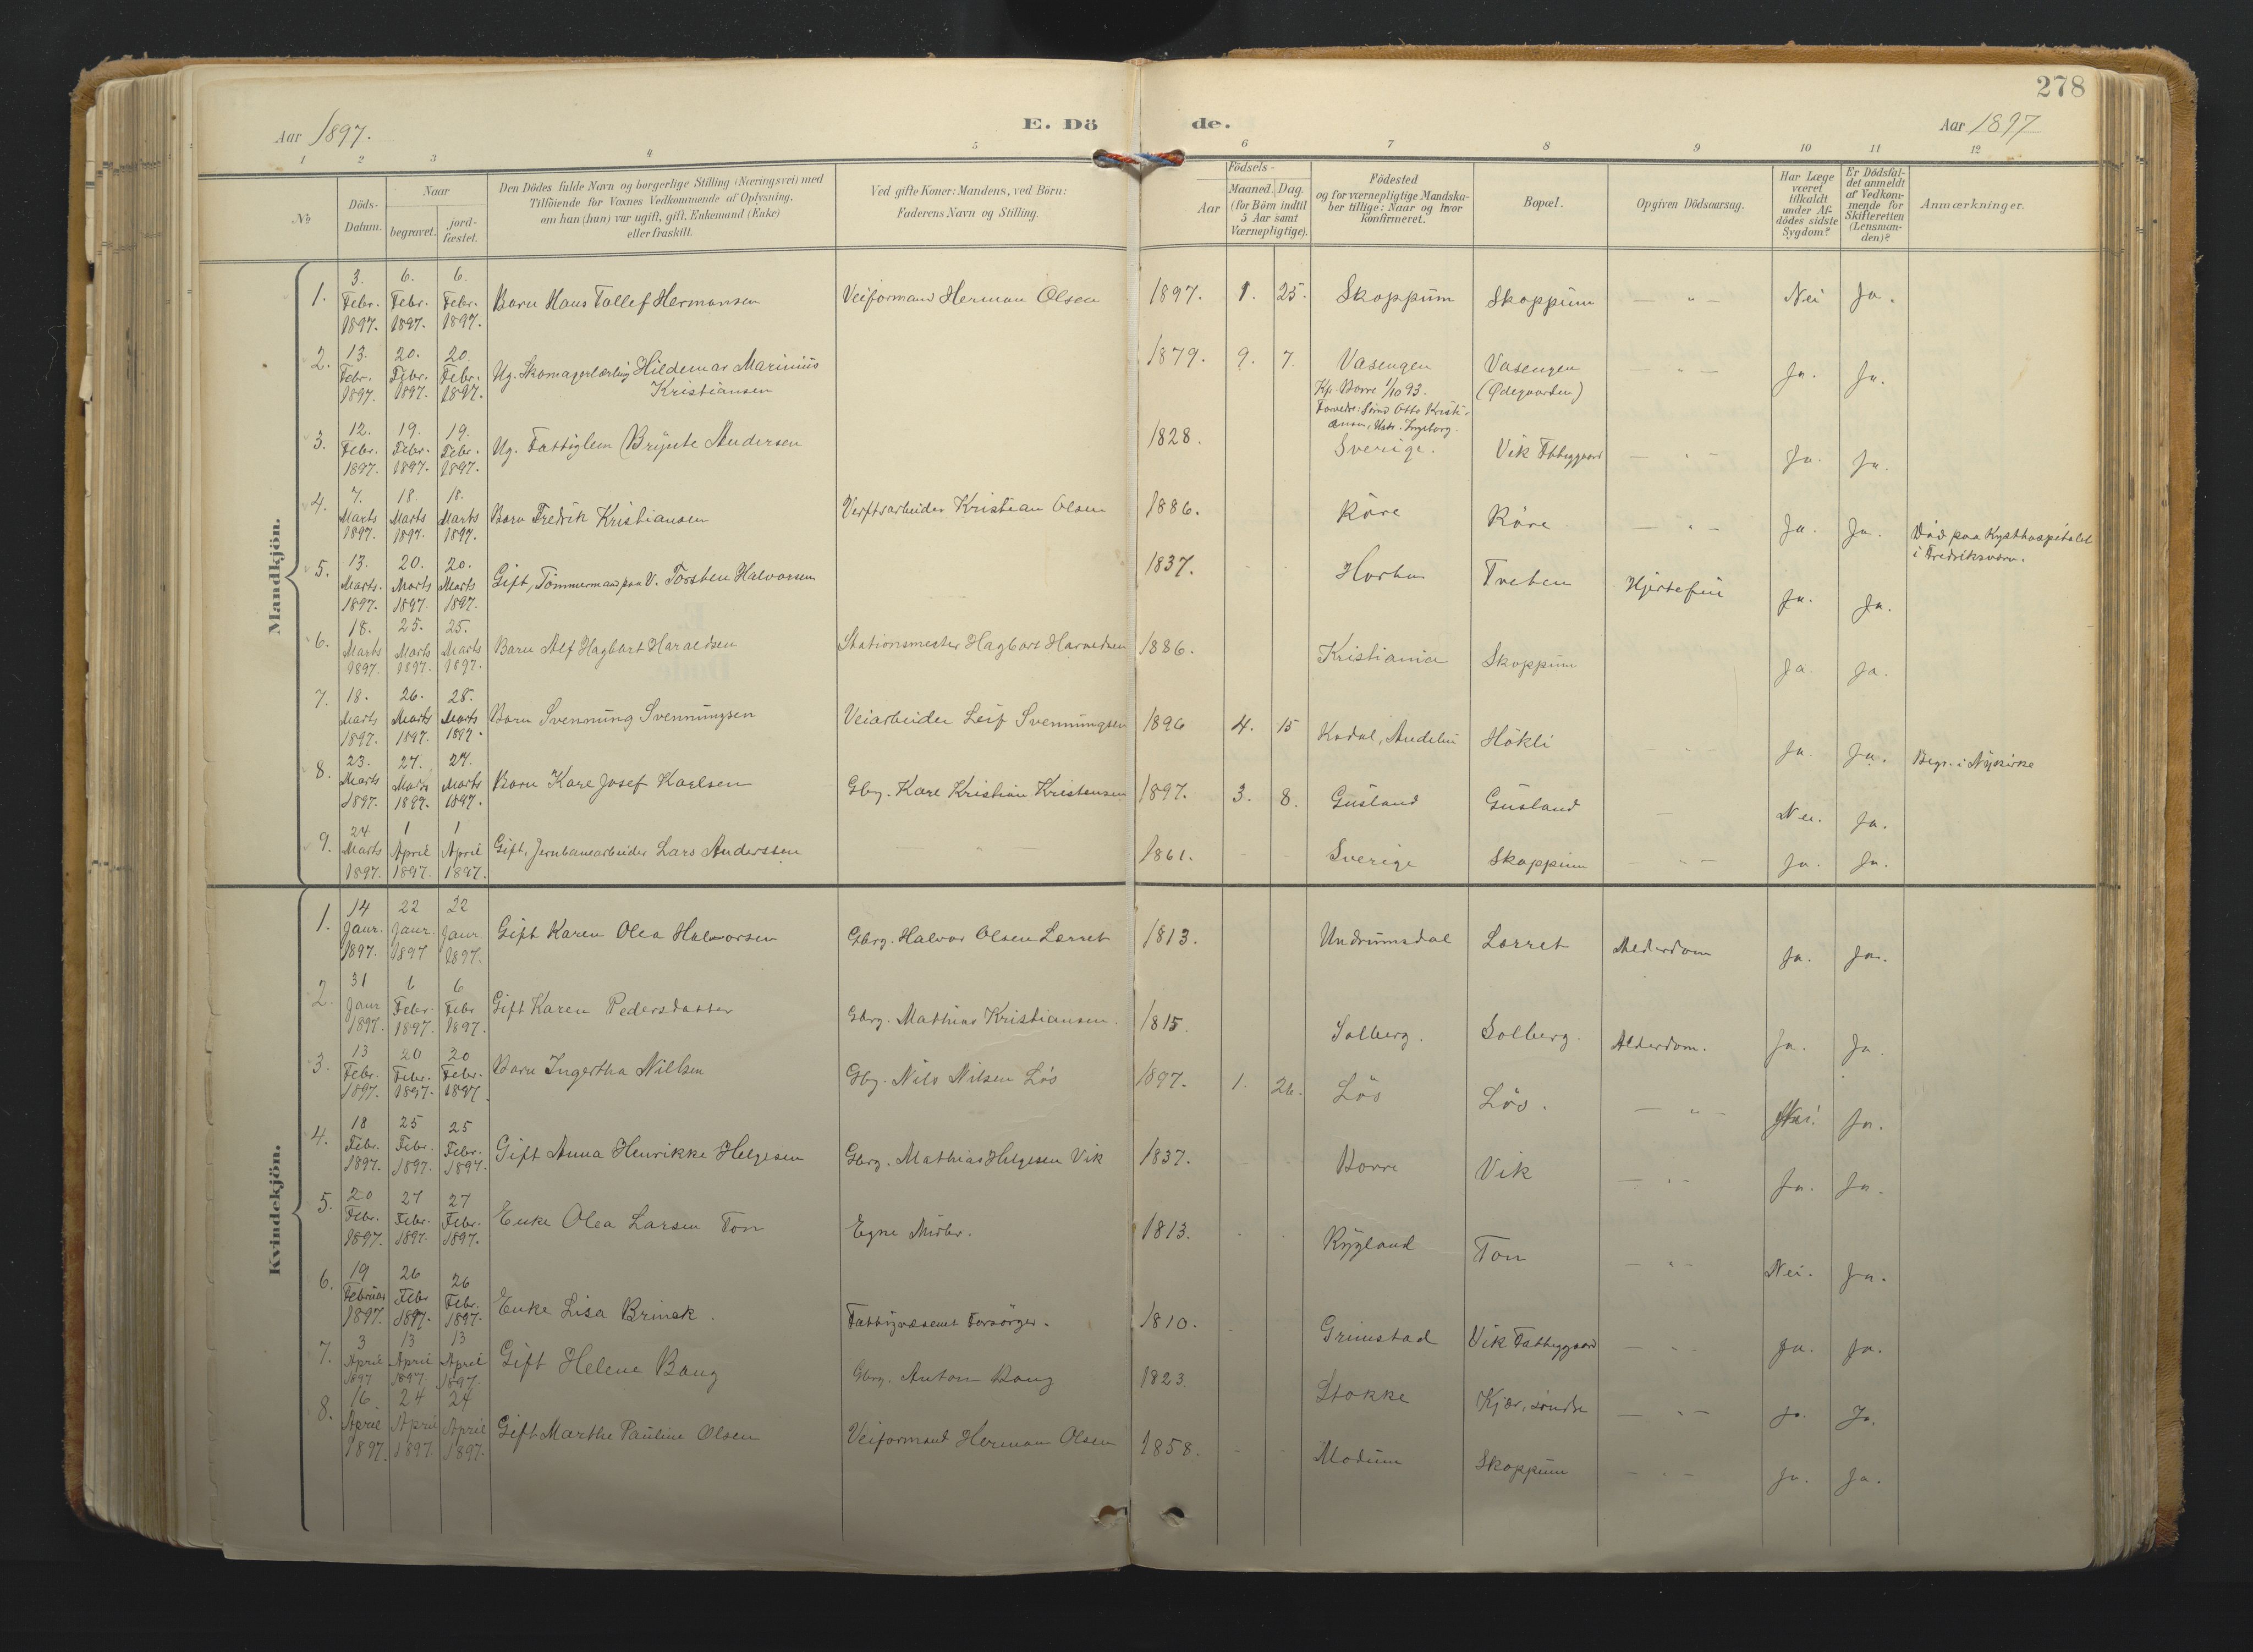 278
Aar 1897.
E. Dö de.
Aar 1897
1 2 3 4 5 6 7 8 9 10 11 12
No
Döds-
Datum.
Naar
begravet.
jord-
fæstet.
Den Dödes fulde Navn og borgerlige Stilling (Næringsvei) med
Tilföiende for Voxnes Vedkommende af Oplysning,
om han (hun) var ugift, gift, Enkemand (Enke)
eller fraskilt.
Ved gifte Koner: Mandens, ved Börn:
Faderens Navn og Stilling.
Födsels-
Aar
Maaned. Dag.
(for Börn indtil
5 Aar samt
Værnepligtige).
Födested
og for værnepligtige Mandska-
ber tillige: Naar og hvor
konfirmeret.
Bopæl.
Opgiven Dödsaarsag.
Har Læge
været
tilkaldt
under Af-
dödes sidste
Sygdom?
Er Dödsfal-
det anmeldt
af Vedkom-
mende for
Skifteretten
(Lensman-
den)?
Anmærkninger.
Mandkjön.
1. 3. Febr. 1897. 6. Febr. 1897. 6. Febr. 1897. Barn Hans Tollef Hermansen Veiformand Herman Olsen 1897. 1. 25. Skoppum Skoppum — " — Nei Ja.
2. 13. Febr. 1897. 20. Febr. 1897. 20. Febr. 1897. Ug. Skomagerlærling Hildemar Marinius
Kristiansen 1879. 9. 7. Vasengen Vasengen — " — Ja. Ja.
Kf. Borre 1/10 93. (Ødegaarden)
Forældre: Otto Kristi-
ansen, Ingeborg.
3. 12. Febr. 1897. 19. Febr. 1897. 19. Febr. 1897. Ug. Fattiglem Brynte Andersen 1828. Sverige. Vik Fattiggaard — " — Ja. Ja.
4. 7. Marts 1897. 18. Marts 1897. 18. Marts 1897. Barn Fredrik Kristiansen Verftsarbeider Kristian Olsen 1886. Röre Röre — " — Ja. Ja. Död paa Kysthospitalet
i Fredriksværn.
5. 13. Marts. 1897. 20. Marts 1897. 20. Marts 1897. Gift, Tömmermand paa V. Torsten Halvorsen 1837. Horten Tveten Hjertefeil Ja. Ja.
6. 18. Marts 1897. 25. Marts 1897. 25. Marts 1897. Barn Alf Hagbart Haraldsen Stationsmester Hagbart Haraldsen 1886. Kristiania Skoppum Ja. Ja.
7. 18. Marts 1897. 26. Marts 1897. 28. Marts 1897. Barn Svennung Svennungsen Veiarbeider Leif Svennungsen 1896 4. 15 Kodal, Andebu Hökli — " — Ja. Ja. Begr. i Nykirke
8. 23. Marts 1897. 27. Marts 1897. 27. Marts 1897. Barn Karl Josef Karlsen Gbrg. Karl Kristian Kristensen 1897. 3. 8. Gusland Gusland — Nei. Ja.
9. 24 Marts 1897. 1 April 1897. 1 April 1897. Gift, Jernbanearbeider Lars Anderssen " — 1861. Sverige Skoppum — " — Ja. Ja.
Kvindekjön.
1. 14 Janr. 1897. 22 Janr. 1897 22 Janr. 1897. Gift Karen Olea Halvorsen Gbrg. Halvor Olsen Lørret 1813. Undrumsdal Lørret Alderdom Ja. Ja.
2. 31 Janr 1897. 6 Febr. 1897. 6 Febr 1897. Gift Karen Pedersdatter Gbrg. Mathias Kristiansen. 1815. Solberg. Solberg. Alderdom. Ja. Ja.
3. 13 Febr. 1897. 20 Febr. 1897. 20 Febr. 1897. Barn Ingertha Nillsen Gbrg. Nils Nilsen Lös 1897. 1. 26. Lös Lös. — " — Nei. Ja.
4. 18 Febr. 1897. 25 Febr. 1897. 25 Febr. 1897. Gift Anna Henrikke Helgesen Gbrg. Mathias Helgesen Vik 1837. Borre Vik — " — Ja. Ja.
5. 20 Febr. 1897. 27 Febr. 1897. 27 Febr. 1897. Enke Olea Larsen Ton Egne Midler. 1813. Rygland Ton — " — Nei. Ja.
6. 19 Februar 1897. 26 Febr 1897. 26 Febr. 1897. Enke Lisa Brinck. Fattigvæsenet Forsörger. 1810. Grimstad Vik Fattiggaard — " — Ja. Ja.
7. 3 April 1897 13 April 1897. 13 April 1897. Gift Helene Baug Gbrg. Anton Baug 1823. Stokke Kjær, söndre — " — Ja. Ja.
8. 16 April 1897. 24 April 1897 24 April 1897. Gift Marthe Pauline Olsen Veiformand Herman Olsen 1858. Modum Skoppum — " — Ja. Ja.